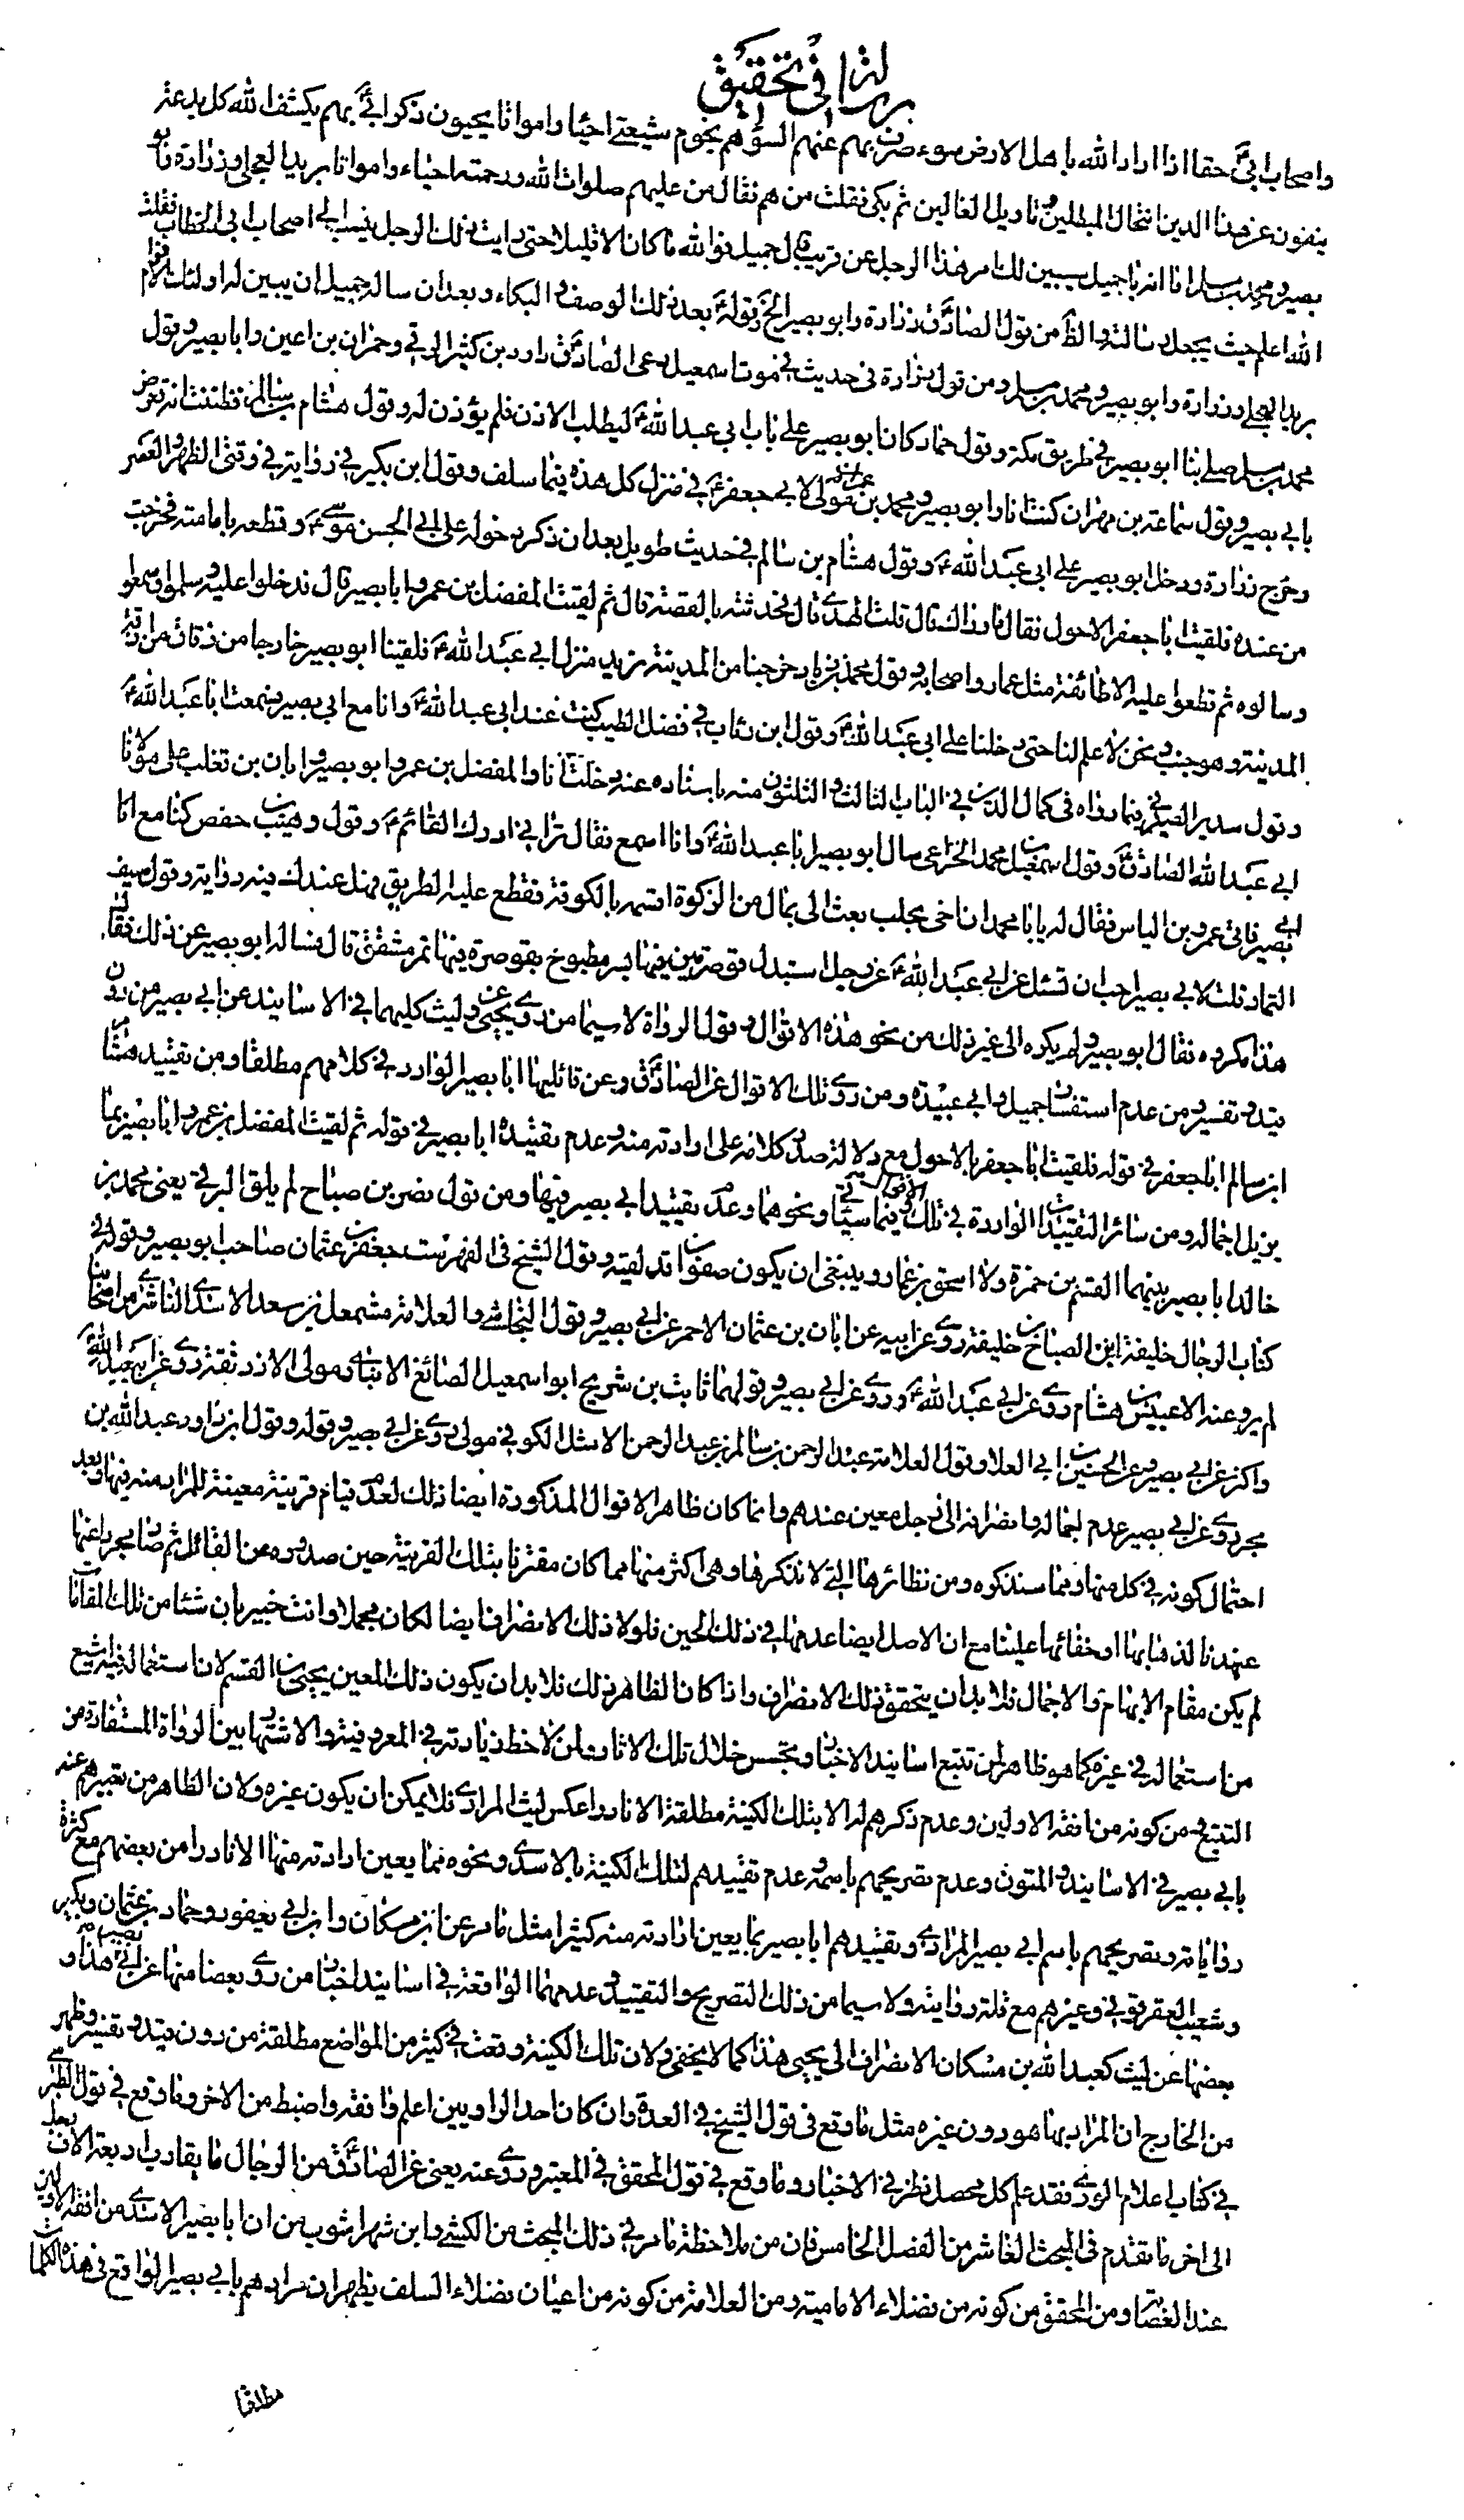 رسالة في تحقيق
واصحاب ابى حقا اذا اراد الله باهل الارض سوء صرف بهم عنهم السوء هم نجوم شيعتى احياء وامواتا يحيون ذكر ابى بهم يكشف الله كل بدعة
ينفون عن هذا الدين انتحال المبطلين و تاويل الغالين ثم بكى فقلت من هم فقال من عليهم صلوات الله ورحمته احياء وامواتا بريد العجلى وزرارة وابو
بصير ومحمد بن مسلم اما انه يا جميل سيبين لك امر هذا الرجل عن قريب قال جميل فوالله ما كان الا قليلا حتى رايت ذلك الرجل ينسب الى اصحاب ابى الخطاب فقلت
الله اعلم حيث يجعل رسالته والظ من قول الصادق زرارة وابو بصير الخ وقوله بعد ذلك الوصف و البكاء وبعد ان ساله جميل ان يبين له اولئك الاقوام
بريد العجلى وزرارة وابو بصير ومحمد بن مسلم ومن قول زرارة فى حديث فى موت اسمعيل دعى الصادق داود بن كثير الرقى وحمران بن اعين وابا بصير وقول
محمد بن مسلم صلى بنا ابو بصير فى طريق مكة وقول حماد كان ابو بصير على باب ابى عبد الله ليطلب الاذن فلم يؤذن له وقول هشام بن سالم فظننت انه تعرض
بابى بصير وقول سماعة بن مهران كنت انا وابو بصير ومحمد بن عمران مولى لابى جعفر فى منزل كل هذه فيما سلف وقول ابن بكير فى رواية فى وقتى الظهر والعصر
وخرج زرارة ودخل ابو بصير على ابى عبد الله وقول هشام بن سالم فى حديث طويل بعد ان ذكر دخوله على ابى الحسن موسى وقطعه بامامته فخرجت
من عنده فلقيت ابا جعفر الاحول فقال ما وراك قال قلت الهدى قال فحدثته بالقصة قال ثم لقيت المفضل بن عمر وابا بصير قال فدخلوا عليه وسلموا وسمعوا
وسالوه ثم قطعوا عليه الا طائفة مثل عمار واصحابه وقول محمد بن زياد خرجنا من المدينة نريد منزل ابى عبد الله فلقينا ابو بصير خارجا من زقاق من ازقة
المدينة وهو جنب ونحن لا علم لنا حتى دخلنا على ابى عبد الله وقول ابن رئاب فى فضل الطيب كنت عند ابى عبد الله وانا مع ابى بصير فسمعت ابا عبد الله
وقول سدير الصيرفى فيما رواه فى كمال الدين فى الباب الثالث و الثلثون منه باسناده عنه دخلت انا والمفضل بن عمر وابو بصير وابان بن تغلب على مولانا
ابى عبد الله الصادق وقول اسمعيل بن محمد الخزاعى سال ابو بصير ابا عبد الله وانا اسمع فقال ترانى ادرك القائم وقول وهيب بن حفص كنا مع ابى
بصير فاتى عمرو بن الياس فقال له يا ابا محمد ان اخى بحلب بعث الى بمال من الزكوة اقسمه بالكوفة فقطع عليه الطريق فهل عندك فيه رواية وقول سيف
التمار قلت لابى بصير احب ان تسئل عن ابى عبد الله عن رجل استبدل قوصرتين فيهما بسر مطبوخ بقوصرة فيها تمر مشقق قال فساله ابو بصير عن ذلك فقال
هذا مكروه فقال ابو بصير ولم يكره الى غير ذلك من نحو هذه الاقوال و قول الرواة لا سيما من روى عن يحيى وليث كليهما فى الاسانيد عن ابى بصير من دون
قيد و تفسير ومن عدم استفسار جميل وابى عبيدة ومن روى تلك الاقوال عن الصادق وعن قائليها ابا بصير الوارد فى كلامهم مطلقا ومن تقييد هشام
ابن سالم ابا جعفر فى قوله فلقيت ابا جعفر بالاحول مع دلالة صدر كلامه على ارادته منه و عدم تقييده ابا بصير فى قوله ثم لقيت المفضل بن عمر وابا بصير بما
يزيل اجماله ومن سائر التقييدات الواردة فى تلك الاخبار وفيما سياتى ونحوهما وعدم تقييد ابى بصير فيها ومن قول نصر بن صباح لم يلق البرقى يعنى محمد بن
خالد ابا بصير بينهما القسم بن حمزة ولا اسحق بن عمار وينبغى ان يكون صفوان قد لقيه وقول الشيخ فى الفهرست جعفر بن عثمان صاحب ابو بصير وقوله فى
كتاب الرجال خليفة ابن الصباح خليفة روى عن ابيه عن ابان بن عثمان الاحمر عن ابى بصير وقول النجاشى والعلامة مشمعل بن سعد الاسدى الناشرى من اصحابنا
لم يرو عنه الا عبيس بن هشام روى عن ابى عبد الله وروى عن ابى بصير وقولهما ثابت بن شريح ابو اسمعيل الصائغ الانبارى مولى الازد ثقة روى عن ابى عبد الله
واكثر عن ابى بصير وعن الحسين بن ابى العلا وقول العلامة عبد الرحمن بن سالم بن عبد الرحمن الاشل الكوفى مولى روى عن ابى بصير وقوله وقول ابن داود عبد الله بن
بحر روى عن ابى بصير عدم اجماله وانصرافه الى رجل معين عندهم وانما كان ظاهر الاقوال المذكورة ايضا ذلك لعدم قيام قرينة معينة للمراد منه فيها وبعد
احتمال كونه فى كل منها وفيما سنذكره ومن نظائرها التى لا نذكرها وهى اكثر منها مما كان مقترنا بتلك القرينة حين صدوره عن القائل ثم صار مجردا عنها
عندنا لذهابها او خفائها علينا مع ان الاصل ايضا عدمها فى ذلك الحين فلولا ذلك الانصراف ايضا لكان مجملا وانت خبير بان شيئا من تلك المقامات
لم يكن مقام الابهام والاجمال فلا بد ان يتحقق ذلك الانصراف واذا كان الظاهر ذلك فلا بد ان يكون ذلك المعين يحيى بن القسم لان استعماله فيه اشيع
من استعماله فى غيره كما هو ظاهر لمن تتبع اسانيد الاخبار وتجسس خلال تلك الاثار ولمن لاحظ زيادته فى المعروفية والاشتهار بين الرواة المستفادة من
التتبع و من كونه من افقه الاولين وعدم ذكرهم له الا بتلك الكنية مطلقة الا نادرا وعكس ليث المرادى فلا يمكن ان يكون غيره ولان الظاهر من تعبيرهم عنه
بابى بصير فى الاسانيد و المتون وعدم تصريحهم باسمه و عدم تقييدهم لتلك الكنية بالاسدى ونحوه مما يعين ارادته منها الا نادرا من بعضهم مع كثرة
رواياته وتصريحهم باسم ابى بصير المرادى وتقييدهم ابا بصير بما يعين ارادته منه كثيرا مثل ما مر عن ابن مسكان وابن ابى يعفور وحماد بن عثمان وبكير
وشعيب العقرقوفى وغيرهم مع قلة رواياته ولا سيما من ذلك التصريح والتقييد و عدمهما الواقعة فى اسانيد اخبار من روى بعضا منها عن ابى بصير هذا و
بعضها عن ليث كعبد الله بن مسكان الانصراف الى يحيى هذا كما لا يخفى ولان تلك الكنية وقعت فى كثير من المواضع مطلقة من دون قيد و تفسير وظهر
من الخارج ان المراد بها هو دون غيره مثل ما وقع فى قول الشيخ فى العدة وان كان احد الراويين اعلم وافقه واضبط من الاخر وما وقع فى قول الطبرسى
فى كتاب اعلام الورى فقد علم كل محصل نظر فى الاخبار وما وقع فى قول المحقق فى المعتبر وروى عنه يعنى عن الصادق من الرجال ما يقارب اربعة الاف رجل
الى اخر ما تقدم فى المبحث العاشر من الفصل الخامس فان من ملاحظة ما مر فى ذلك المبحث من الكشى وابن شهراشوب من ان ابا بصير الاسدى من افقه الاولين
عند العصابة ومن المحقق من كونه من فضلاء الامامية ومن العلامة من كونه من اعيان فضلاء السلف يظهر ان مرادهم بابى بصير الواقع فى هذه الكلمات
مطلقا